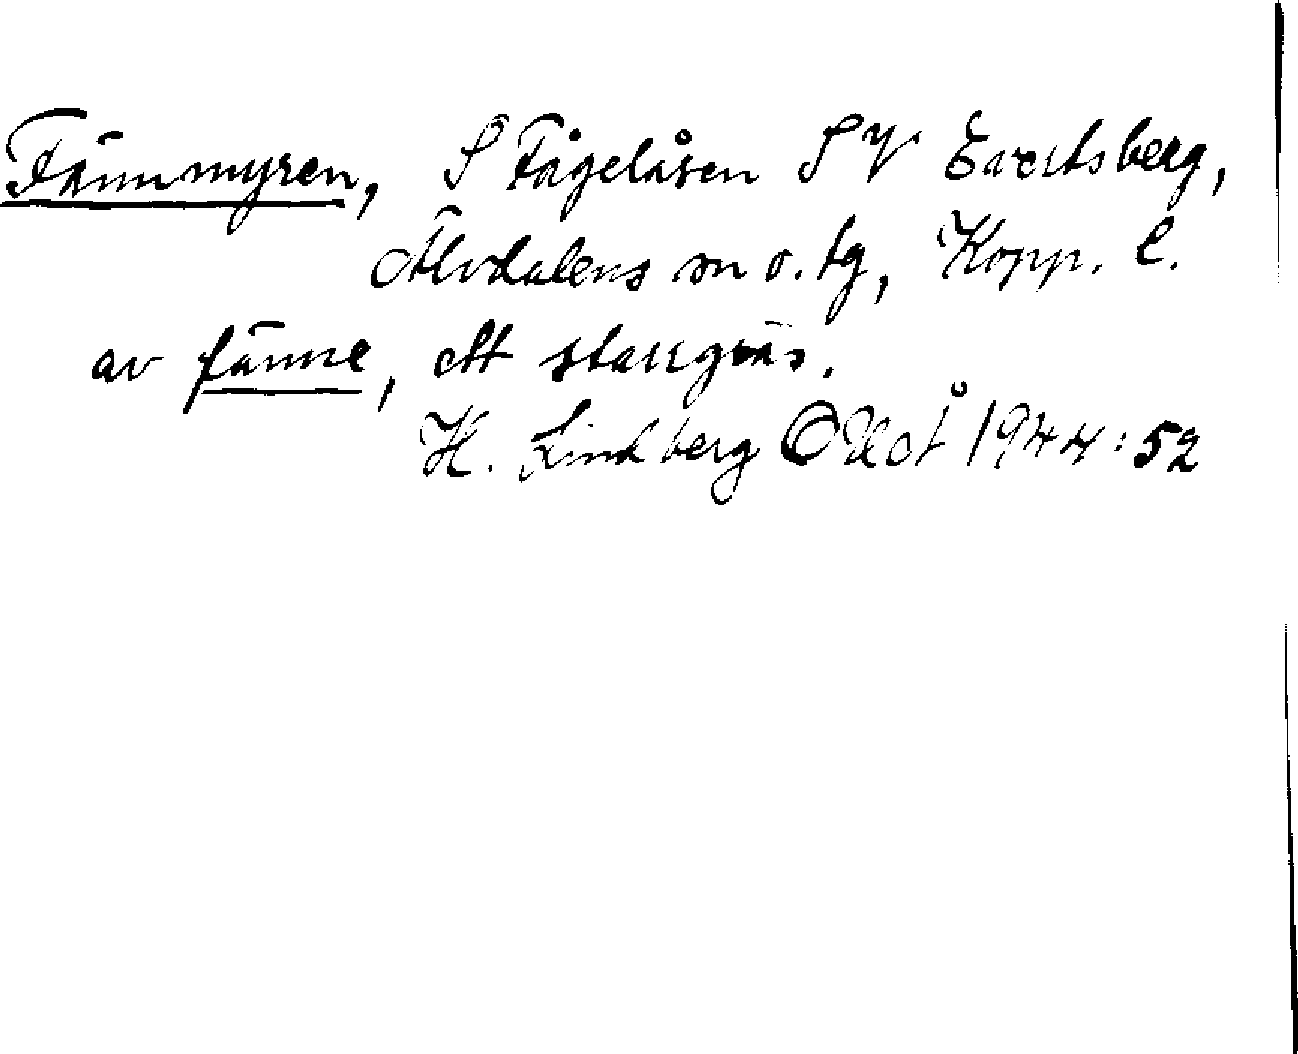 Fännmyren, S Fågelåsen SV Evertsberg,
Älvdalens sn o. tg, Kopp. l.
av fänne, ett starrgräs.
H. Lindberg OUoÅ 1944:52